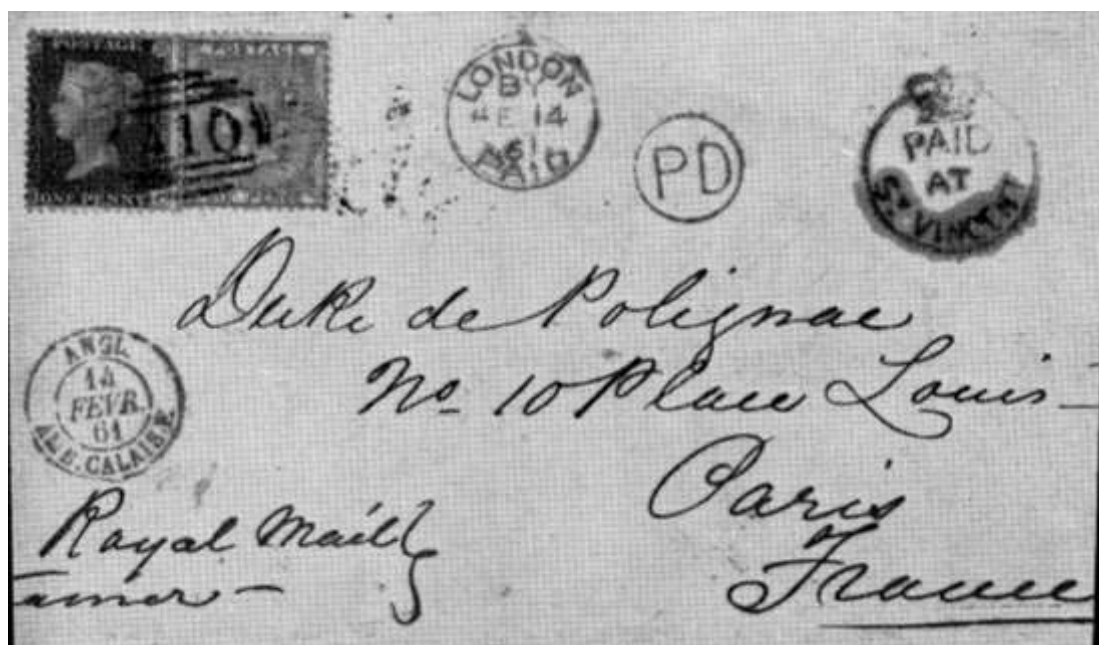 POSTAGE POSTAGE
A10
ONE PENNY
LONDON
BY
FE 14
61
PD
PAID
AT
ST VINCENT
Duke de Polignac
No 10 Place Louis
Paris
France
ANGL.
14
FEVR.
61
AMB. CALAIS
Royal Mail